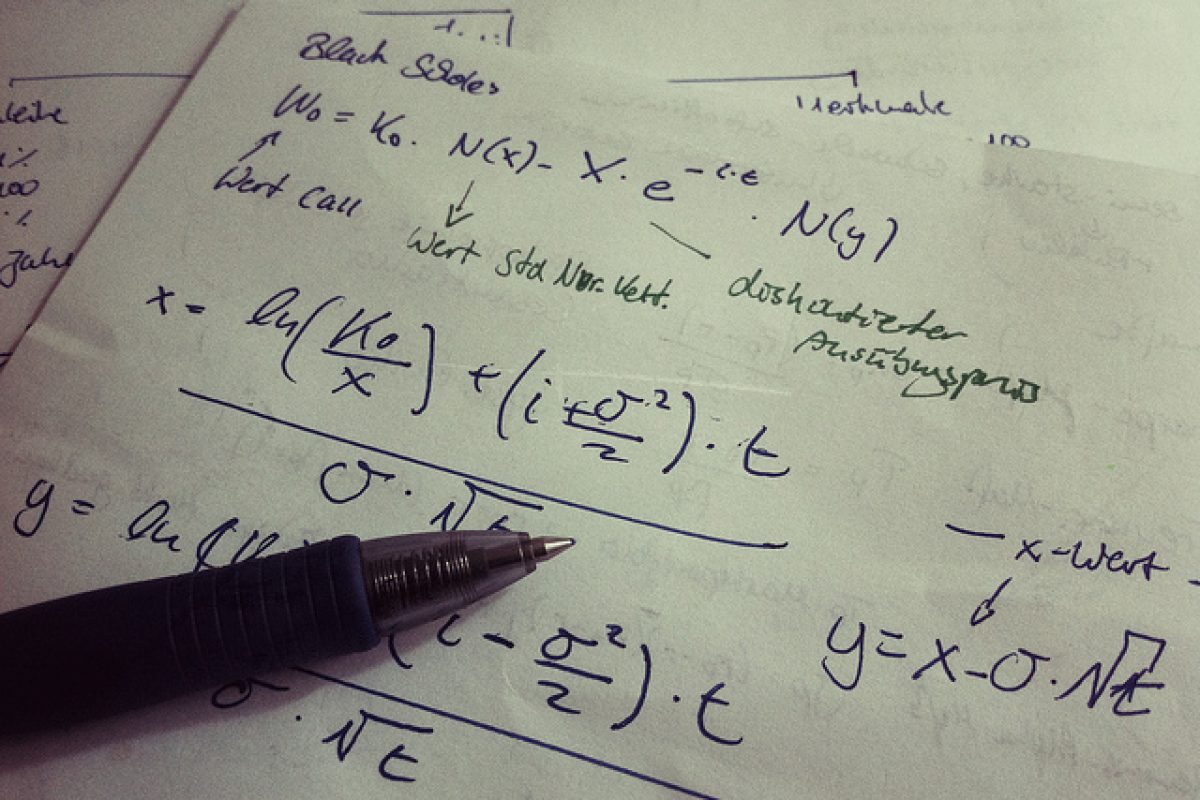 Black Scholes
W₀ = K₀ · N(x) - X · e^(-i·t) · N(y)
Wert Call
Wert Std Nor. Vert.
diskontierter
Ausübungspreis
x = (ln(K₀/x) + (i + σ²/2) · t) / (σ · √t)
y = ln(K
(i - σ²/2) · t
σ · √t
x-Wert
y = x - σ · √t
Merkmale
100
%
100
%
Jahr